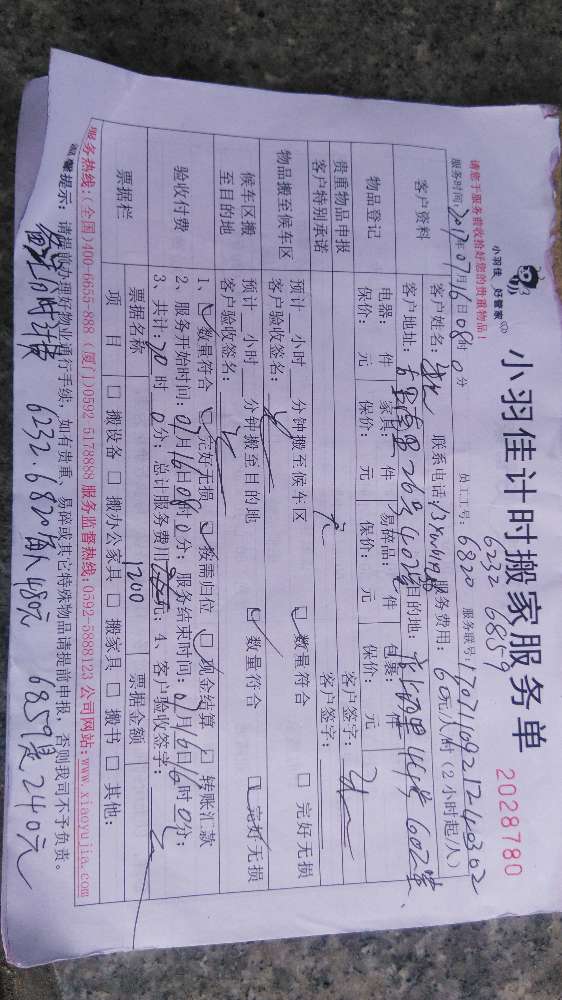 小羽佳 好管家
小羽佳计时搬家服务单
2028780
6232 6859
请您于服务前收拾好您的贵重物品!
服务时间: 2017年07月16日08时0分 员工工号: 6820 服务联号:
客户资料
客户姓名: 联系电话: 服务费用: 60元/人/时(2小时起/人)
客户地址: 26号402室 目的地: 602室
物品登记
电器: 件 家具: 件 易碎品: 件 包裹: 件
保价: 元 保价: 元 保价: 元 保价: 元
贵重物品申报 无 客户签字:
客户特别承诺 客户签字:
物品搬至候车区
预计 小时 分钟搬至候车区 数量符合 完好无损
客户验收签名:
候车区搬至目的地
预计 小时 分钟搬至目的地 数量符合 完好无损
客户验收签名:
验收付费
1、数量符合 完好无损 按需归位 现金结算 转账汇款
2、服务开始时间: 07月16日08时0分; 服务结束时间: 07月16日16时0分;
3、共计: 20时0分; 总计服务费用 元; 4、客户验收签字:
1200
票据栏
票据名称 票据金额
项 目 搬设备 搬办公家具 搬家具 搬书 其他:
服务热线:(全国)400-6655-888 (厦门)0592 5178888 服务监督热线:0592-5883123 公司网站:www.xiaoyujia.com
温馨提示: 请提前办理好物业通行手续,如有贵重、易碎或其它特殊物品请提前申报,否则我司不予负责。
6232.6820 480元 6859是240元